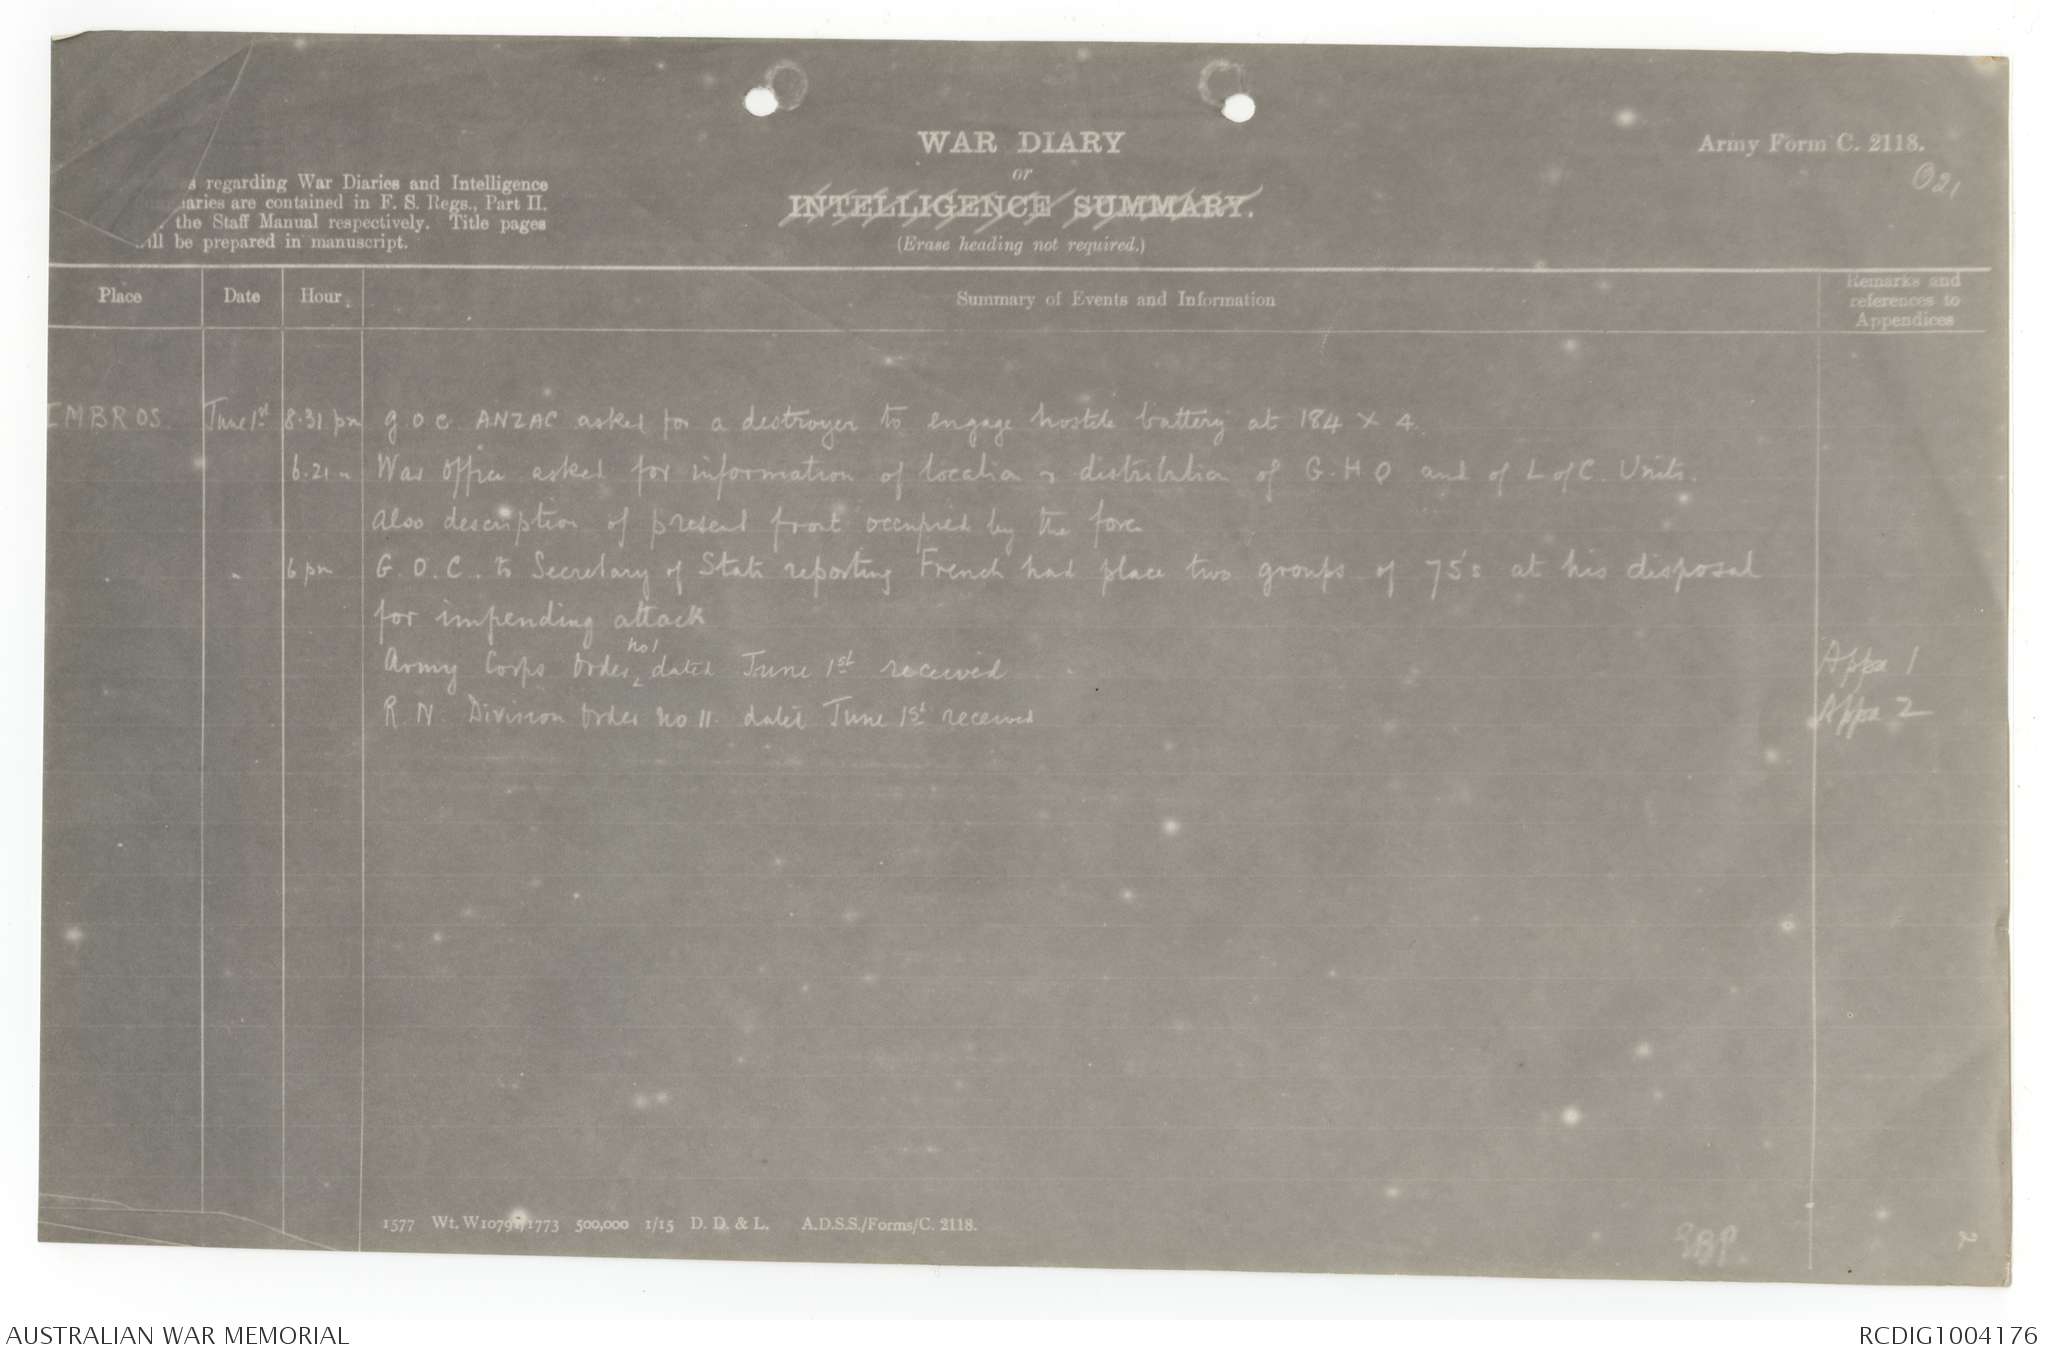 WAR DIARY
or
INTELLIGENCE SUMMARY.
(Erase heading not required.)
Army Form C. 2118.
021
s regarding War Diaries and Intelligence
aries are contained in F. S. Regs., Part II.
the Staff Manual respectively. Title pages
ill be prepared in manuscript.
Place Date Hour. Summary of Events and Information Remarks and references to Appendices
IMBROS June 1st 8.31 pm G O C ANZAC asked for a destroyer to engage hostile battery at 184 X 4.
6.21 " War Office asked for information of location & distribution of G.H.Q and of L of C. Units.
Also description of present front occupied by the force
" 6 pm G.O.C. to Secretary of State reporting French had place two groups of 75's at his disposal
for impending attack
Army Corps Order no 1 dated June 1st received Appx 1
R.N. Division Order no 11. dated June 1st received Appx 2
1577 Wt. W10791/1773 500,000 1/15 D. D. & L. A.D.S.S./Forms/C. 2118.
AUSTRALIAN WAR MEMORIAL
RCDIG1004176